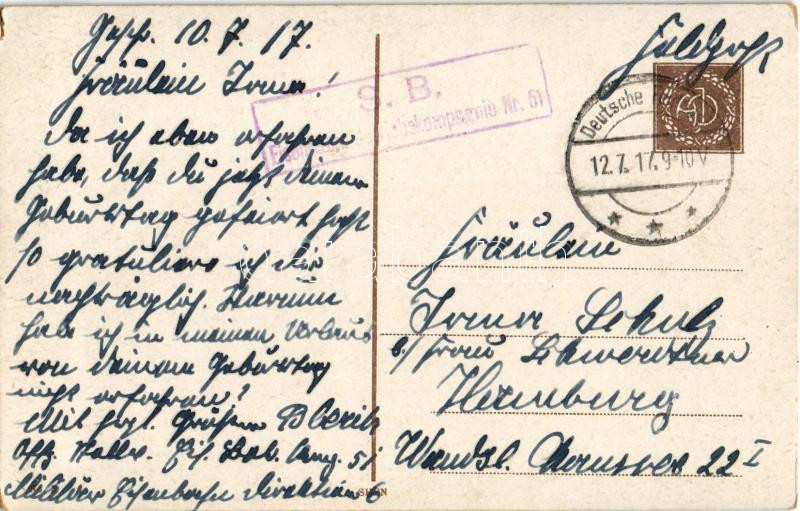 Gesch. 10.7.17.
Fräulein Irma!
Da ich eben erfahren
habe, daß du jetzt deinen
Geburtstag gefeiert hast
so gratuliere ich dir
nachträglich. Warum
hab ich in meinen Urlaub
von deinem Geburtstag
nicht erfahren?
Mit hrzl. Grüßen
Eis. Betr. Komp. 51
Militär Eisenbahn Direktion 6
S. B.
bskompagnie Nr. 51
Feldpost
Deutsche
12.7.17.9-10V
Fräulein
Irma Schulz
b/ Frau
Hamburg
Wandsb. Chaussee 22 I